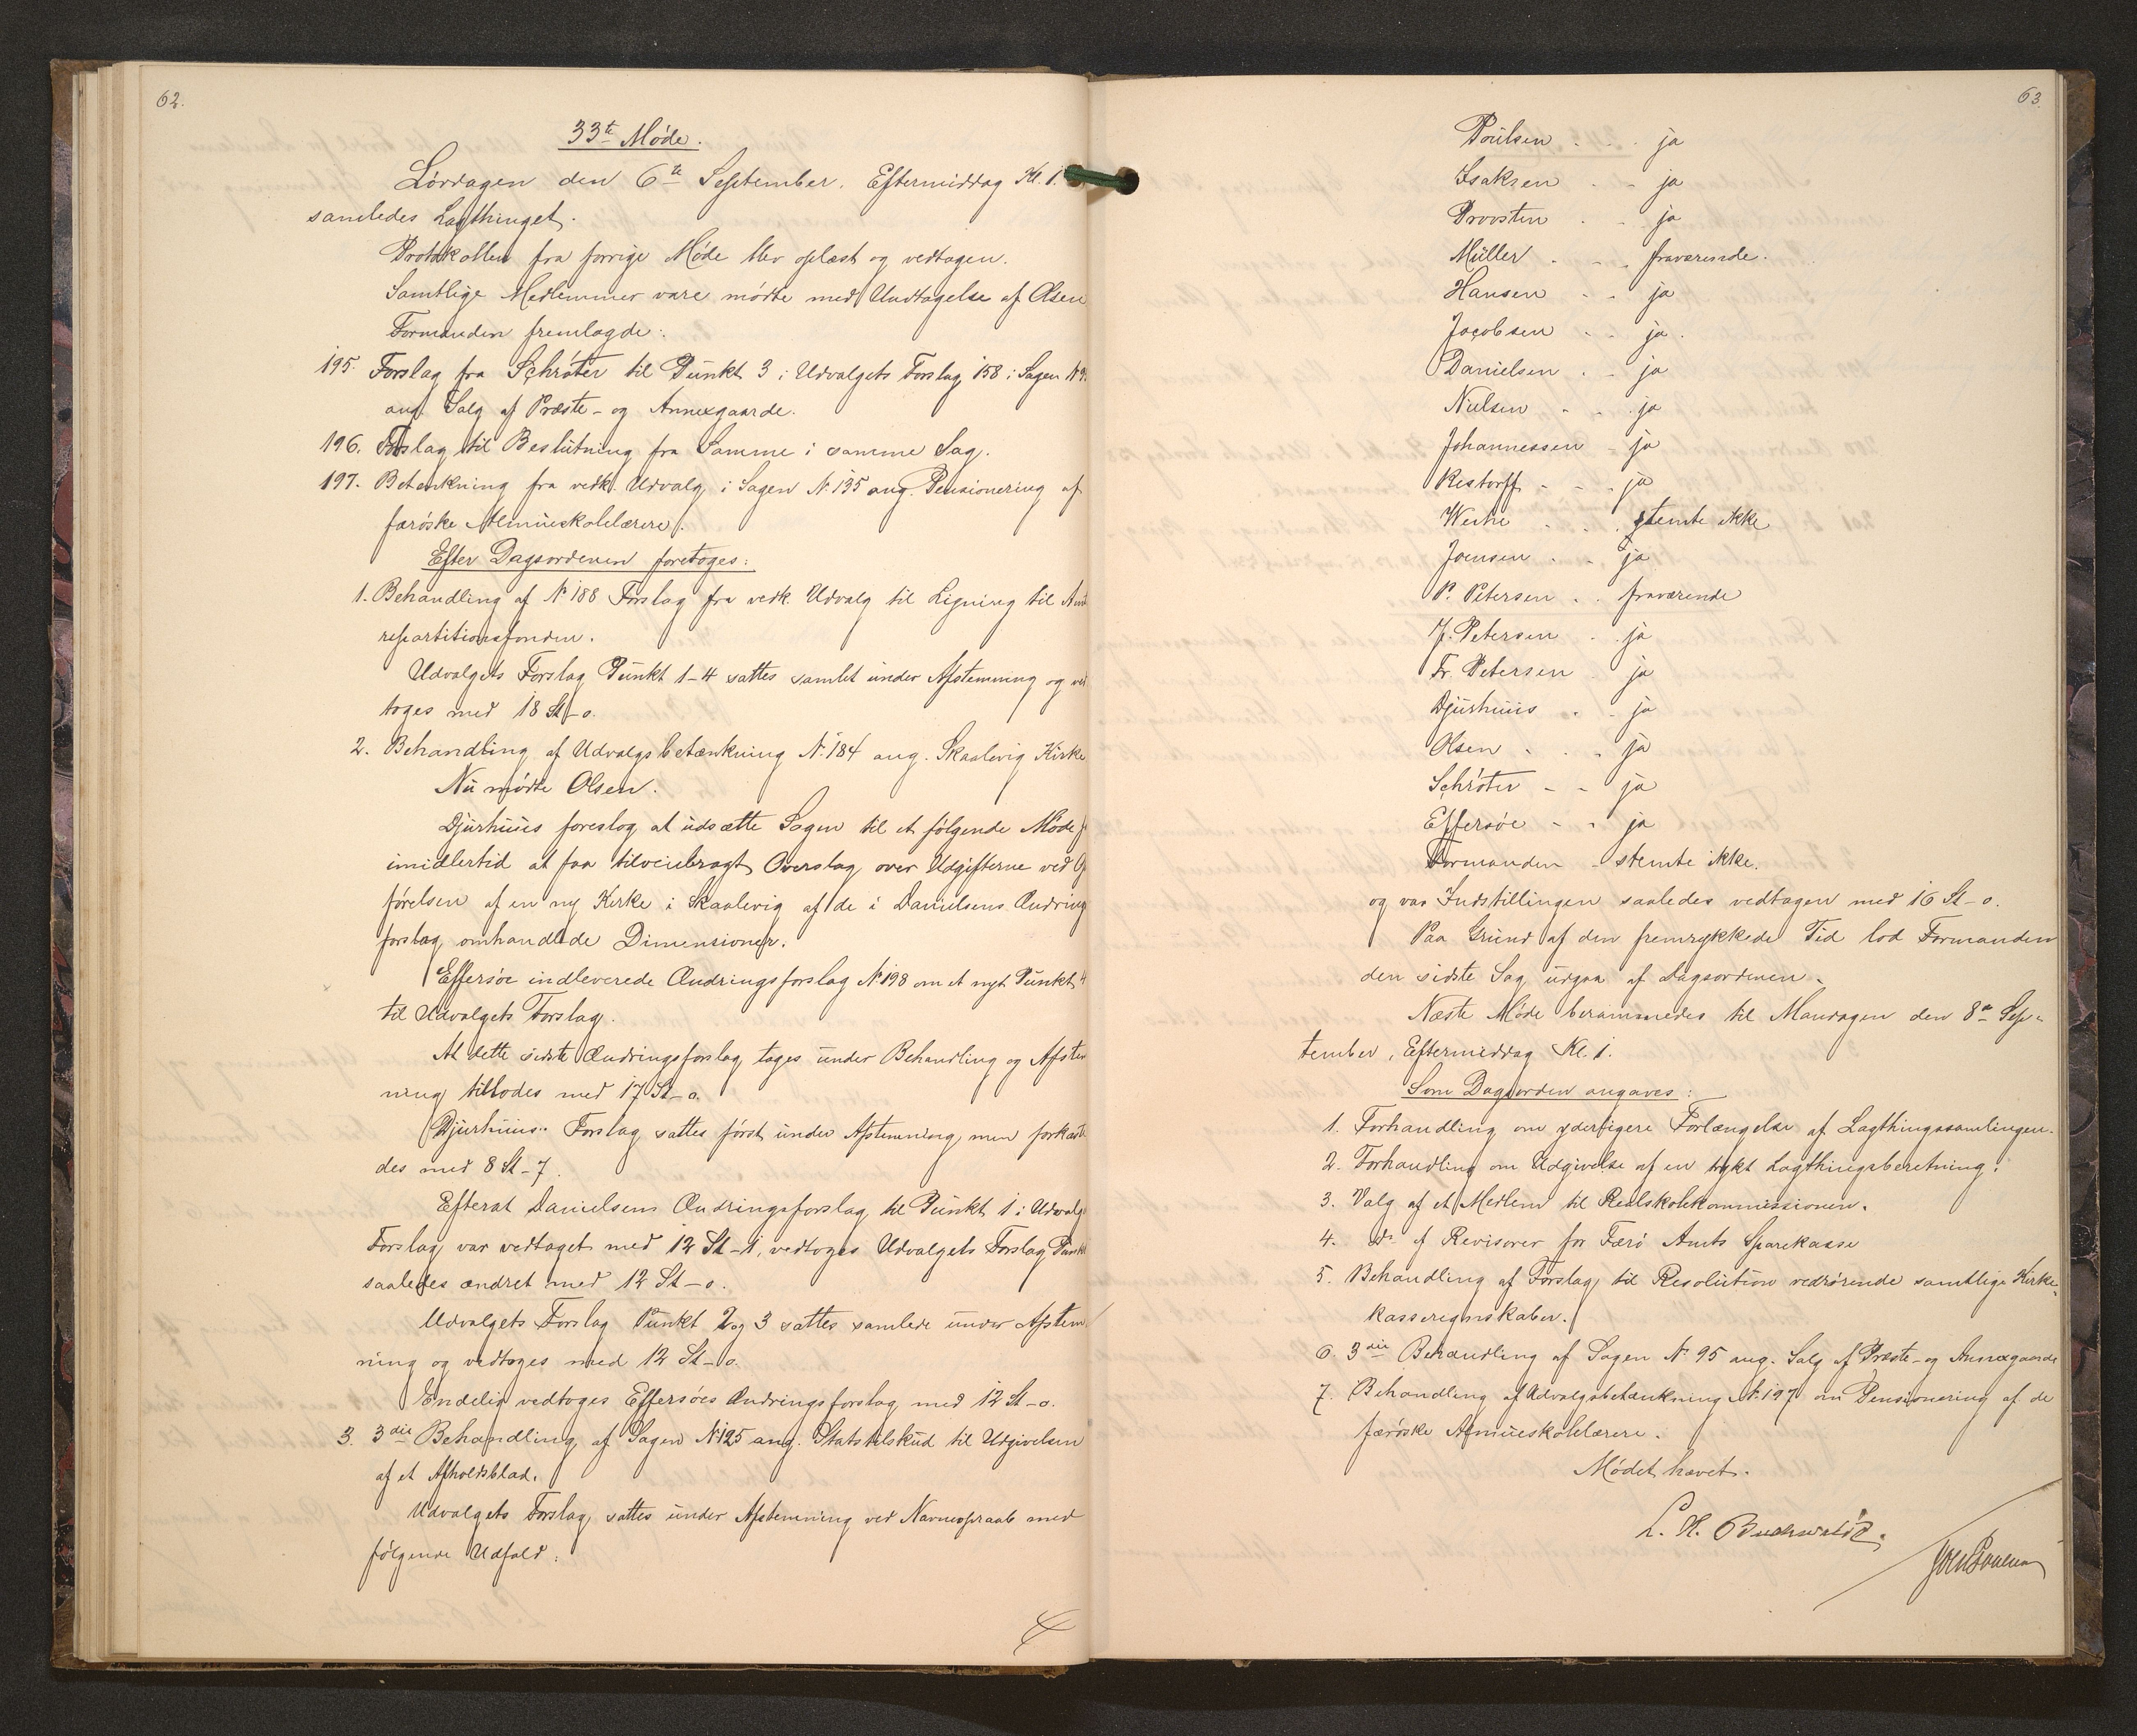 62.
33te Møde.
Lørdagen den 6te September, Eftermiddag Kl. 1.
samledes Lagthinget.
Protokollen fra forrige Møde blev oplæst og vedtagen.
Samtlige Medlemmer vare mødte med Undtagelse af Olsen
Formanden fremlagde:
195. Forslag fra Schrøter til Punkt 3 i Udvalgets Forslag 158 i Sagen
ang. Salg af Præste- og Annexgaarde.
196. Forslag til Beslutning fra Samme i samme Sag.
197. Betænkning fra vedk. Udvalg i Sagen N. 135 ang. Pensionering af
færøske Almueskolelærere.
Efter Dagsordenen foretoges:
1. Behandling af No 188 Forslag fra vedk. Udvalg til Ligning til Amts
repartitionsfonden.
Udvalgets Forslag Punkt 1-4 sattes samlet under Afstemning og ved
toges med 18 St-o.
2. Behandling af Udvalgsbetænkning N. 184 ang. Skaalevig Kirke
Nu mødte Olsen.
Djurhuus foreslog at udsætte Sagen til et følgende Møde f
imidlertid at faa tilveiebragt Overslag over Udgifterne ved Op
førelsen af en ny Kirke i Skaalevig af de i Danielsens Ændrings
forslag omhandlede Dimensioner.
Effersøe indleverede Ændringsforslag No 198 om et nyt Punkt 4
til Udvalgets Forslag.
At dette sidste Ændringsforslag tages under Behandling og Afstem
ning tillodes med 17 St-o.
Djurhuus's Forslag sattes først under Afstemning, men forkaste
des med 8 St-7.
Efterat Danielsens Ændringsforslag til Punkt 1 i Udvalgs
Forslag var vedtaget med 12 St-1, vedtoges Udvalgets Forslag Punkt
saaledes ændret med 12 St-o.
Udvalgets Forslag Punkt 2 og 3 sattes samlede under Afstem
ning og vedtoges med 12 St-o.
Endelig vedtoges Effersøes Ændringsforslag med 12 St-o.
3. 3die Behandling af Sagen N. 125 ang. Statstilskud til Udgivelsen
af et Afholdsblad.
Udvalgets Forslag sattes under Afstemning ved Navneopraab med
følgende Udfald:
63.
Poulsen - - ja
Isaksen - - ja
Provsten - - ja
Müller - - fraværende.
Hansen - - ja
Jacobsen - - ja.
Danielsen - - ja
Nielsen - - ja
Johannessen - ja
Restorff - - ja
Weihe - - stemte ikke
Joensen - - ja
P. Petersen - - fraværende
J. Petersen - - ja
Fr. Petersen ja
Djurhuus - - ja
Olsen - - ja
Schrøter - - ja
Effersøe - - ja
Formanden - stemte ikke.
og var Indstillingen saaledes vedtagen med 16 St-o.
Paa Grund af den fremrykkede Tid lod Formanden
den sidste Sag udgaa af Dagsordenen.
Næste Møde berammedes til Mandagen den 8de Sep-
tember, Eftermiddag Kl. 1.
Som Dagsorden angaves:
1. Forhandling om yderligere Forlængelse af Lagthingssamlingen.
2. Forhandling om Udgivelse af en trykt Lagthingsberetning.
3. Valg af et Medlem til Realskolekommissionen.
4. Do af Revisorer for Færø Amts Sparekasse
5. Behandling af Forslag til Resolution vedrørende samtlige Kirke-
kasseregnskaber.
6. 3die Behandling af Sagen No 95 ang. Salg af Præste- og Annexgaarde
7. Behandling af Udvalgsbetænkning N. 197 om Pensionering af de
færøske Almueskolelærere.
Mødet hævet.
L. H. Buchwaldt.